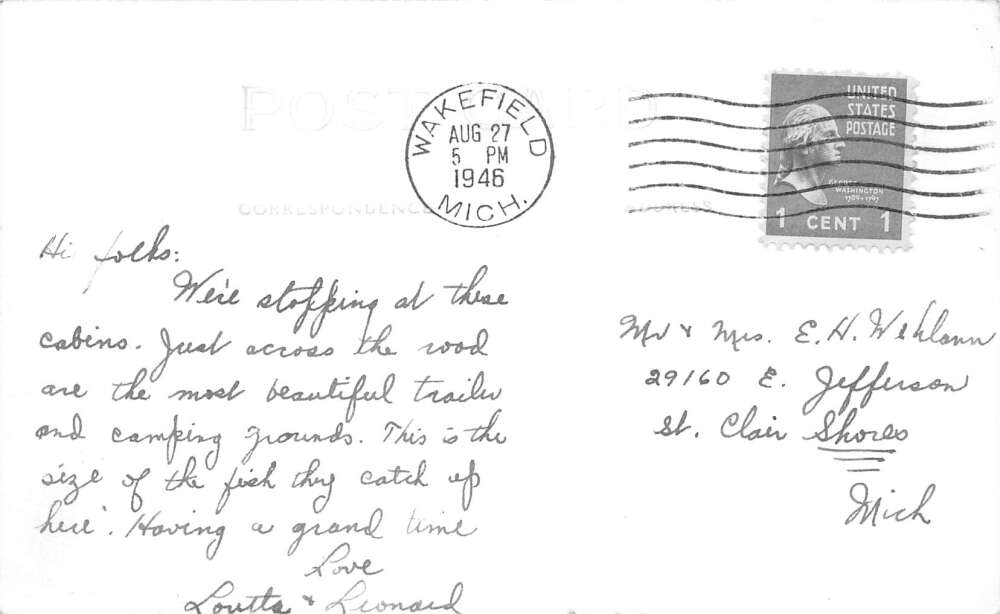 POST CARD
WAKEFIELD
AUG 27
5 PM
1946
MICH.
UNITED
STATES
POSTAGE
GEORGE
WASHINGTON
1789-1797
1 CENT 1
CORRESPONDENCE ADDRESS
Hi folks:
We're stopping at these
cabins. Just across the road
are the most beautiful trailer
and camping grounds. This is the
size of the fish they catch up
here. Having a grand time
Love
& Leonard
Mr & Mrs. E. H.
29160 E. Jefferson
St. Clair Shores
Mich